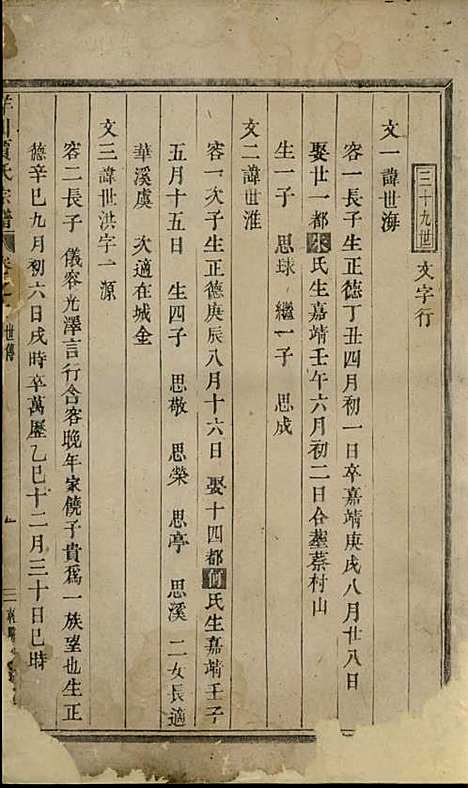 三十九世 文字行
文一諱世海
容一長子生正德丁丑四月初一日卒嘉靖庚戌八月廿八日
娶廿一都朱氏生嘉靖壬午六月初二日合塟蔡村山
生一子 思球 繼一子 思成
文二諱世淮
容一次子生正德庚辰八月十六日 娶十四都何氏生嘉靖壬子
五月十五日 生四子 思敬 思榮 思亭 思溪 二女長適
華溪虞 次適在城金
文三諱世洪字一源
容二長子 儀容光澤言行含容晚年家饒子貴爲一族望也生正
德辛巳九月初六日戌時卒萬歷乙巳十二月三十日巳時
氏宗譜 世傳